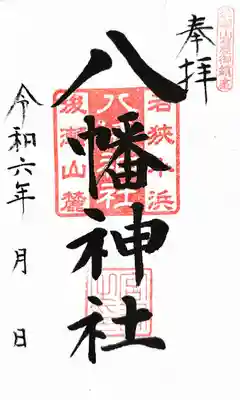 奉拝
八幡神社
若狭小浜
八幡神社
後瀬山麓
令和六年 月 日